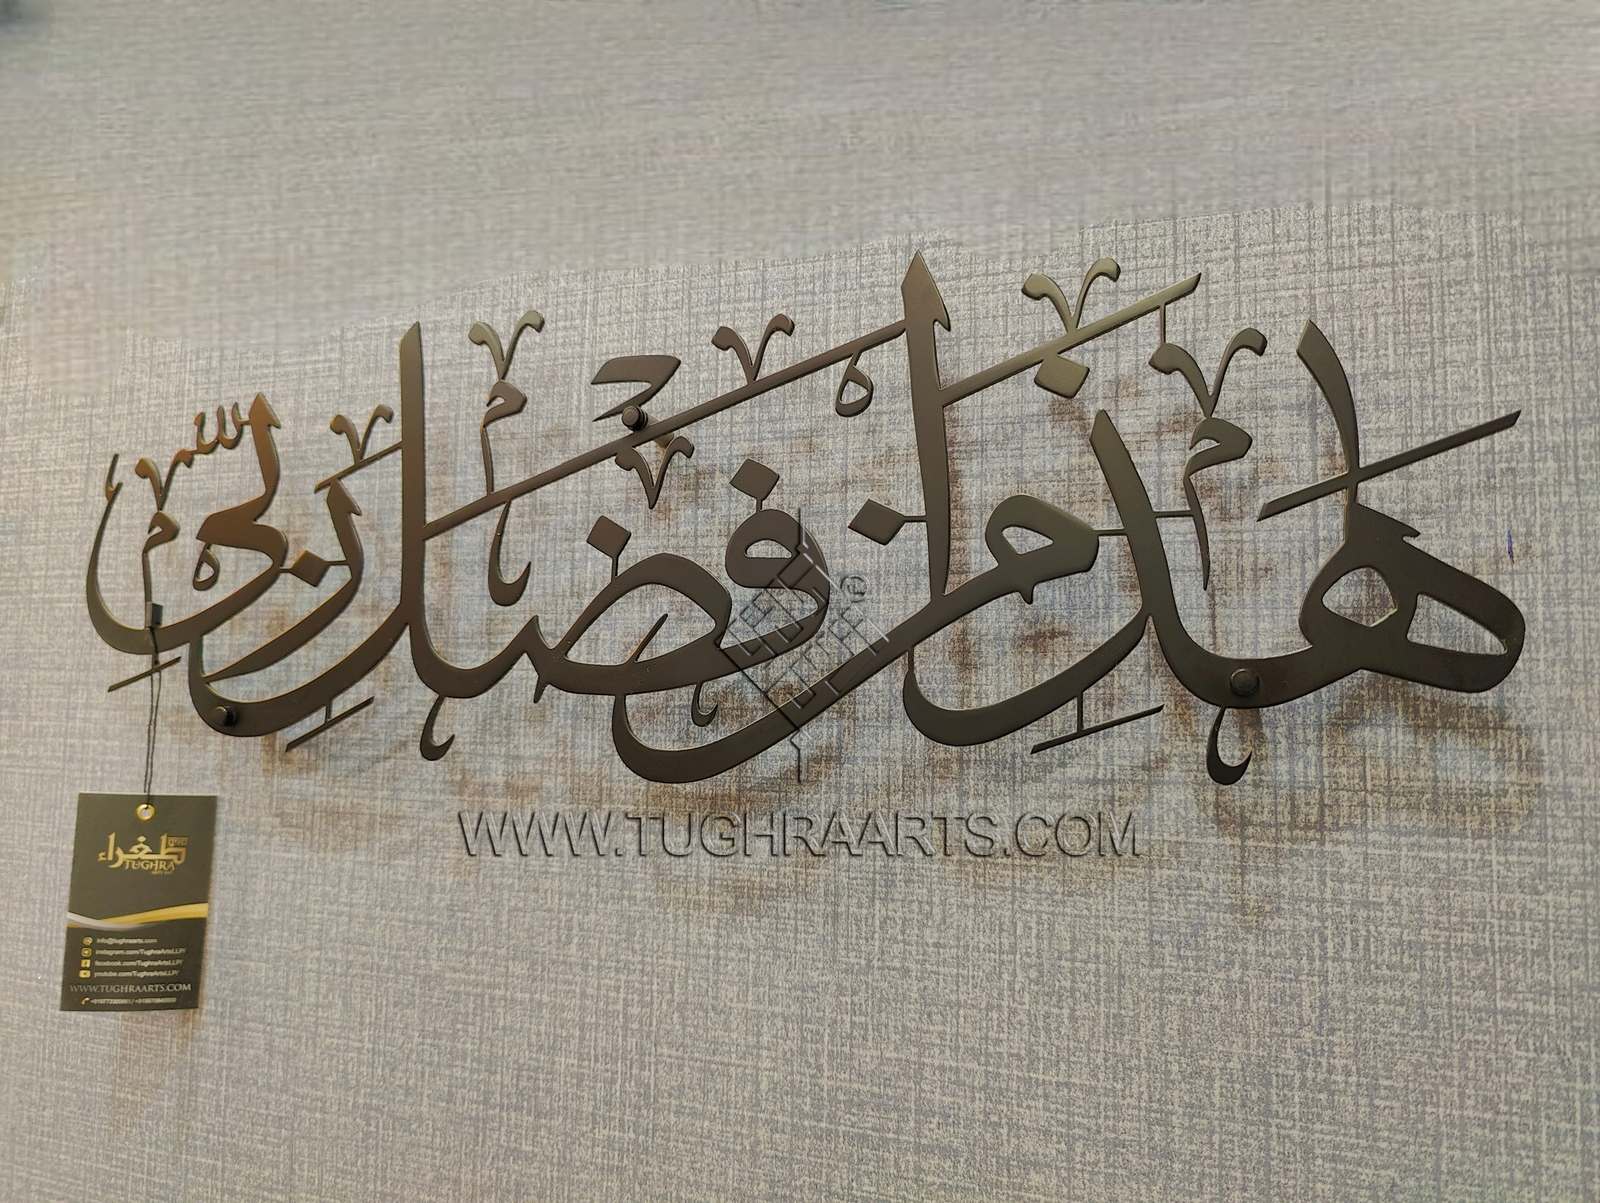 هذا من فضل ربي
WWW.TUGHRAARTS.COM
طغراء
TUGHRA
ARTS LLP
info@tughraarts.com
instagram.com/TughraArtsLLP/
facebook.com/TughraArtsLLP/
youtube.com/TughraArtsLLP/
WWW.TUGHRAARTS.COM